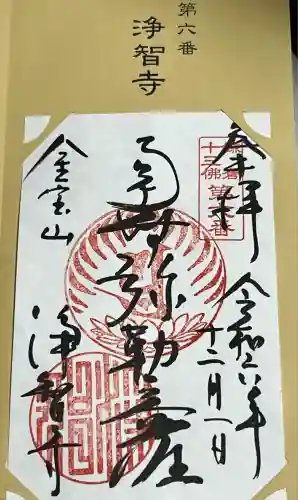 第六番
浄智寺
奉拝
令和六年
十二月一日
鎌倉
十三佛
第六番
弥勒菩薩
金宝山
浄智寺